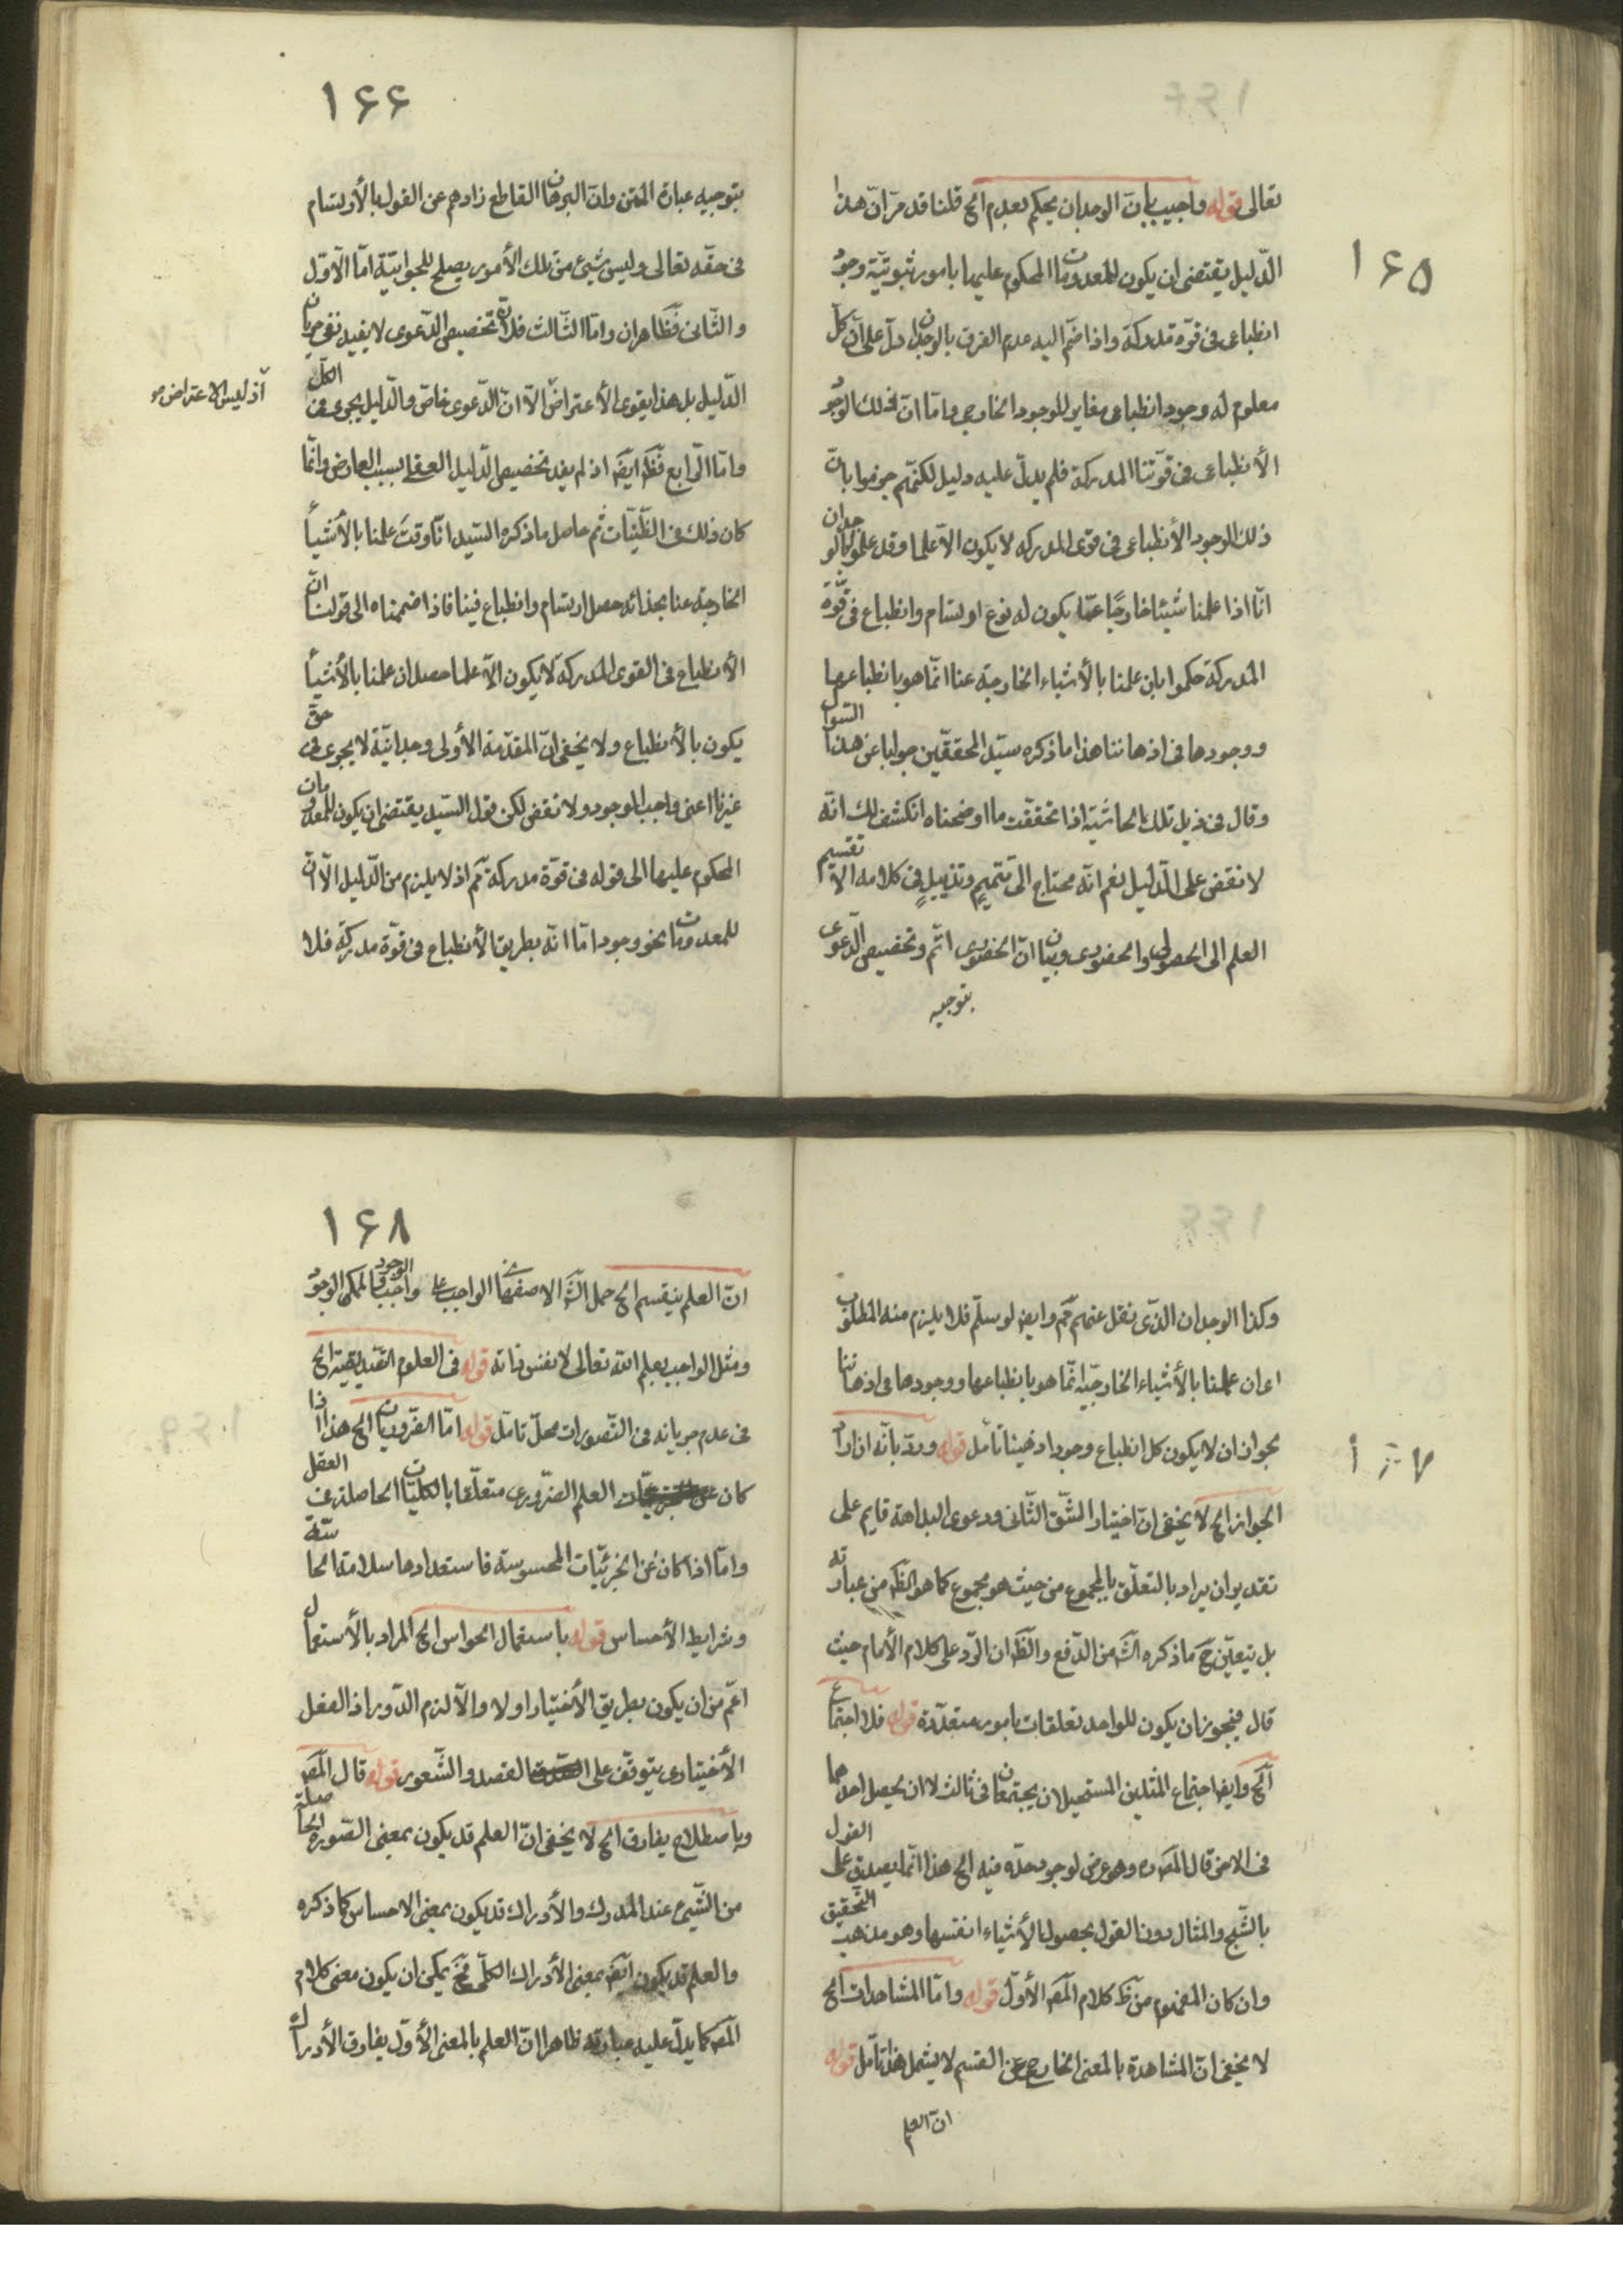 ۱۶۵
تعالى قوله واجيب بانّ الوجدان يحكم بعدم الخ قلنا قد مرّ انّ هذا
الدّليل يقتضى ان يكون للمعدومات المحكوم عليها بامور ثبوتيّة وجود
انطباعى فى قوّة مدركة واذا ضمّ اليه عدم الفرق بالوجدان دلّ على انّ كلّ
معلوم له وجود انطباعى مغاير للوجود الخارجى وامّا انّ ذلك الوجود
الأنطباعى فى قوّتنا المدركة فلم يدلّ عليه دليل لكنّهم جزموا بانّ
ذلك الوجود الأنطباعى فى قوى المدركه لا يكون الّا علما وقد علموا بالوجدان
انّا اذا علمنا شيئا خارجًا عنّا يكون له نوع ارتسام وانطباع فى قوّة
المدركة حكموا بان علمنا بالأشياء الخارجية عنا انّما هو بانطباعها
ووجودها فى اذهاننا هذا ما ذكره سيّد المحققين جوابا عن هذا السّوال
وقال فى ذيل تلك الحاشيّة اذا تحققت ما اوضحناه انكشف لك انّه
لا نقض على الدّليل نعم انّه محتاج الى تتميمٍ وتذييلٍ فى كلامه الّا تقسيم
العلم الى الحصولى والحضورى وبيان انّ الحضورى اتمّ وتخصيص الدّعوى
بتوجيه
۱۶۶
بتوجيه عبارة المتن وانّ البرهان القاطع زادهم عن القول بالأرتسام
فى حقّه تعالى وليس شيئ من تلك الأمور يصلح للجوابيّة امّا الأوّل
والثّانى فظاهران وامّا الثّالث فلانّ تخصيص الدّعوى لا يفيد نفى جريان
الدّليل بل هذا يقوى الأعتراض الّا انّ الدّعوى خاصّ والدّليل يجرى فى الكلّ
اذ ليس الاعتراض
وامّا الرّابع فظ ايضا اذ لم يفد تخصيص الدّليل العقلى بسبب العارض وانّما
كان ذلك فى الظّنيّات ثم حاصل ما ذكره السّيد انّا وقت علمنا بالأشيأ
الخارجة عنا بحذائه حصل ارتسام وانطباع فينا فاذا ضممناه الى قولنا انّ
الأنطباع فى القوى المدركة لا يكون الّا علما حصل ان علمنا بالأشيأ
يكون بالأنطباع ولا يخفى انّ المقدّمة الأولى وجدانيّة لا يجرى فى حقّ
غيرنا اعنى واجب الوجود ولا نقض لكن قول السّيد يقتضى ان يكون للمعدومات
المحكوم عليها الى قوله فى قوّة مدركة ثم اذ لا يلزم من الدّليل الّا انّ
للمعدومات نحو وجود امّا انّه بطريق الأنطباع فى قوّة مدركة فلا
وكذا الوجدان الّذى نقل عنهم ثم وايض لو سلّم فلا يلزم منه المطلوب
اى ان علمنا بالأشياء الخارجيّة انّما هو بانطباعها ووجودها فى اذهاننا
لجواز ان لا يكون كل انطباع وجودا ذهنيا تأمل قوله وردّ بانّه ان اراد
الجواز الخ لا يخفى انّ اختيار الشّق الثّانى ودعوى البداهة قايم على
تقدير ان يراد بالتعلّق بالمجموع من حيث هو مجموع كما هو الظ من عبارته
بل يتعيّن ح ما ذكره الش من الدّفع والظ ان الرّد على كلام الأمام حيث
قال فيجوز ان يكون للواحد تعلقات بامور متعدّدة قوله فلا اجتماع
الخ وايض اجتماع المثلين المستحيل ان يجتمعان فى ثالث لا ان يحصل احدهما
فى الاخر قال المص ره وهو عرض لوجود حدّه فيه الخ هذا انّما يصدق على القول
بالشّبح والمثال دون القول بحصول الأشياء انفسها وهو مذهب التّحقيق
وان كان المفهوم من ظ كلام المص الأوّل قوله وامّا المشاهدات الخ
لا يخفى انّ المشاهدة بالمعنى الخارج عن القسم لا يشمل هذا تأمل قوله
انّ العلم
۱۶۸
انّ العلم ينقسم الخ حمل الش الاصفهانى الواجب على واجب الوجود والممكن الوجود
ومثل الواجب بعلم الله تعالى لا بنفس ذاته قوله فى العلوم التّصديقية الخ
فى عدم جريانه فى التّصورات محلّ تامّل قوله امّا الضّروريات الخ هذا اذا
كان العلم الضّرورى متعلّقا بالكليّات الحاصلة فى العقل
وامّا اذا كان عن الجزئيّات المحسوسة فاستعدادها سلامة الحاسّة
وشرايط الأحساس قوله باستعمال الحواس الخ المراد بالأستعمال
اعمّ من ان يكون بطريق الأختيار اولا والّا لزم الدّور اذ الفعل
الأختيارى يتوقّف على القصد والشّعور قوله قال المص
وباصطلاح يفارق الخ لا يخفى انّ العلم قد يكون بمعنى الصّورة الحاصلة
من الشّيئ عند المدرك والأدراك قد يكون بمعنى الاحساس كما ذكره
والعلم قد يكون ايض بمعنى الأدراك الكلّى فح يمكن ان يكون معنى كلام
المص كما يدلّ عليه عبارته ظاهرا انّ العلم بالمعنى الأوّل يفارق الأدراك